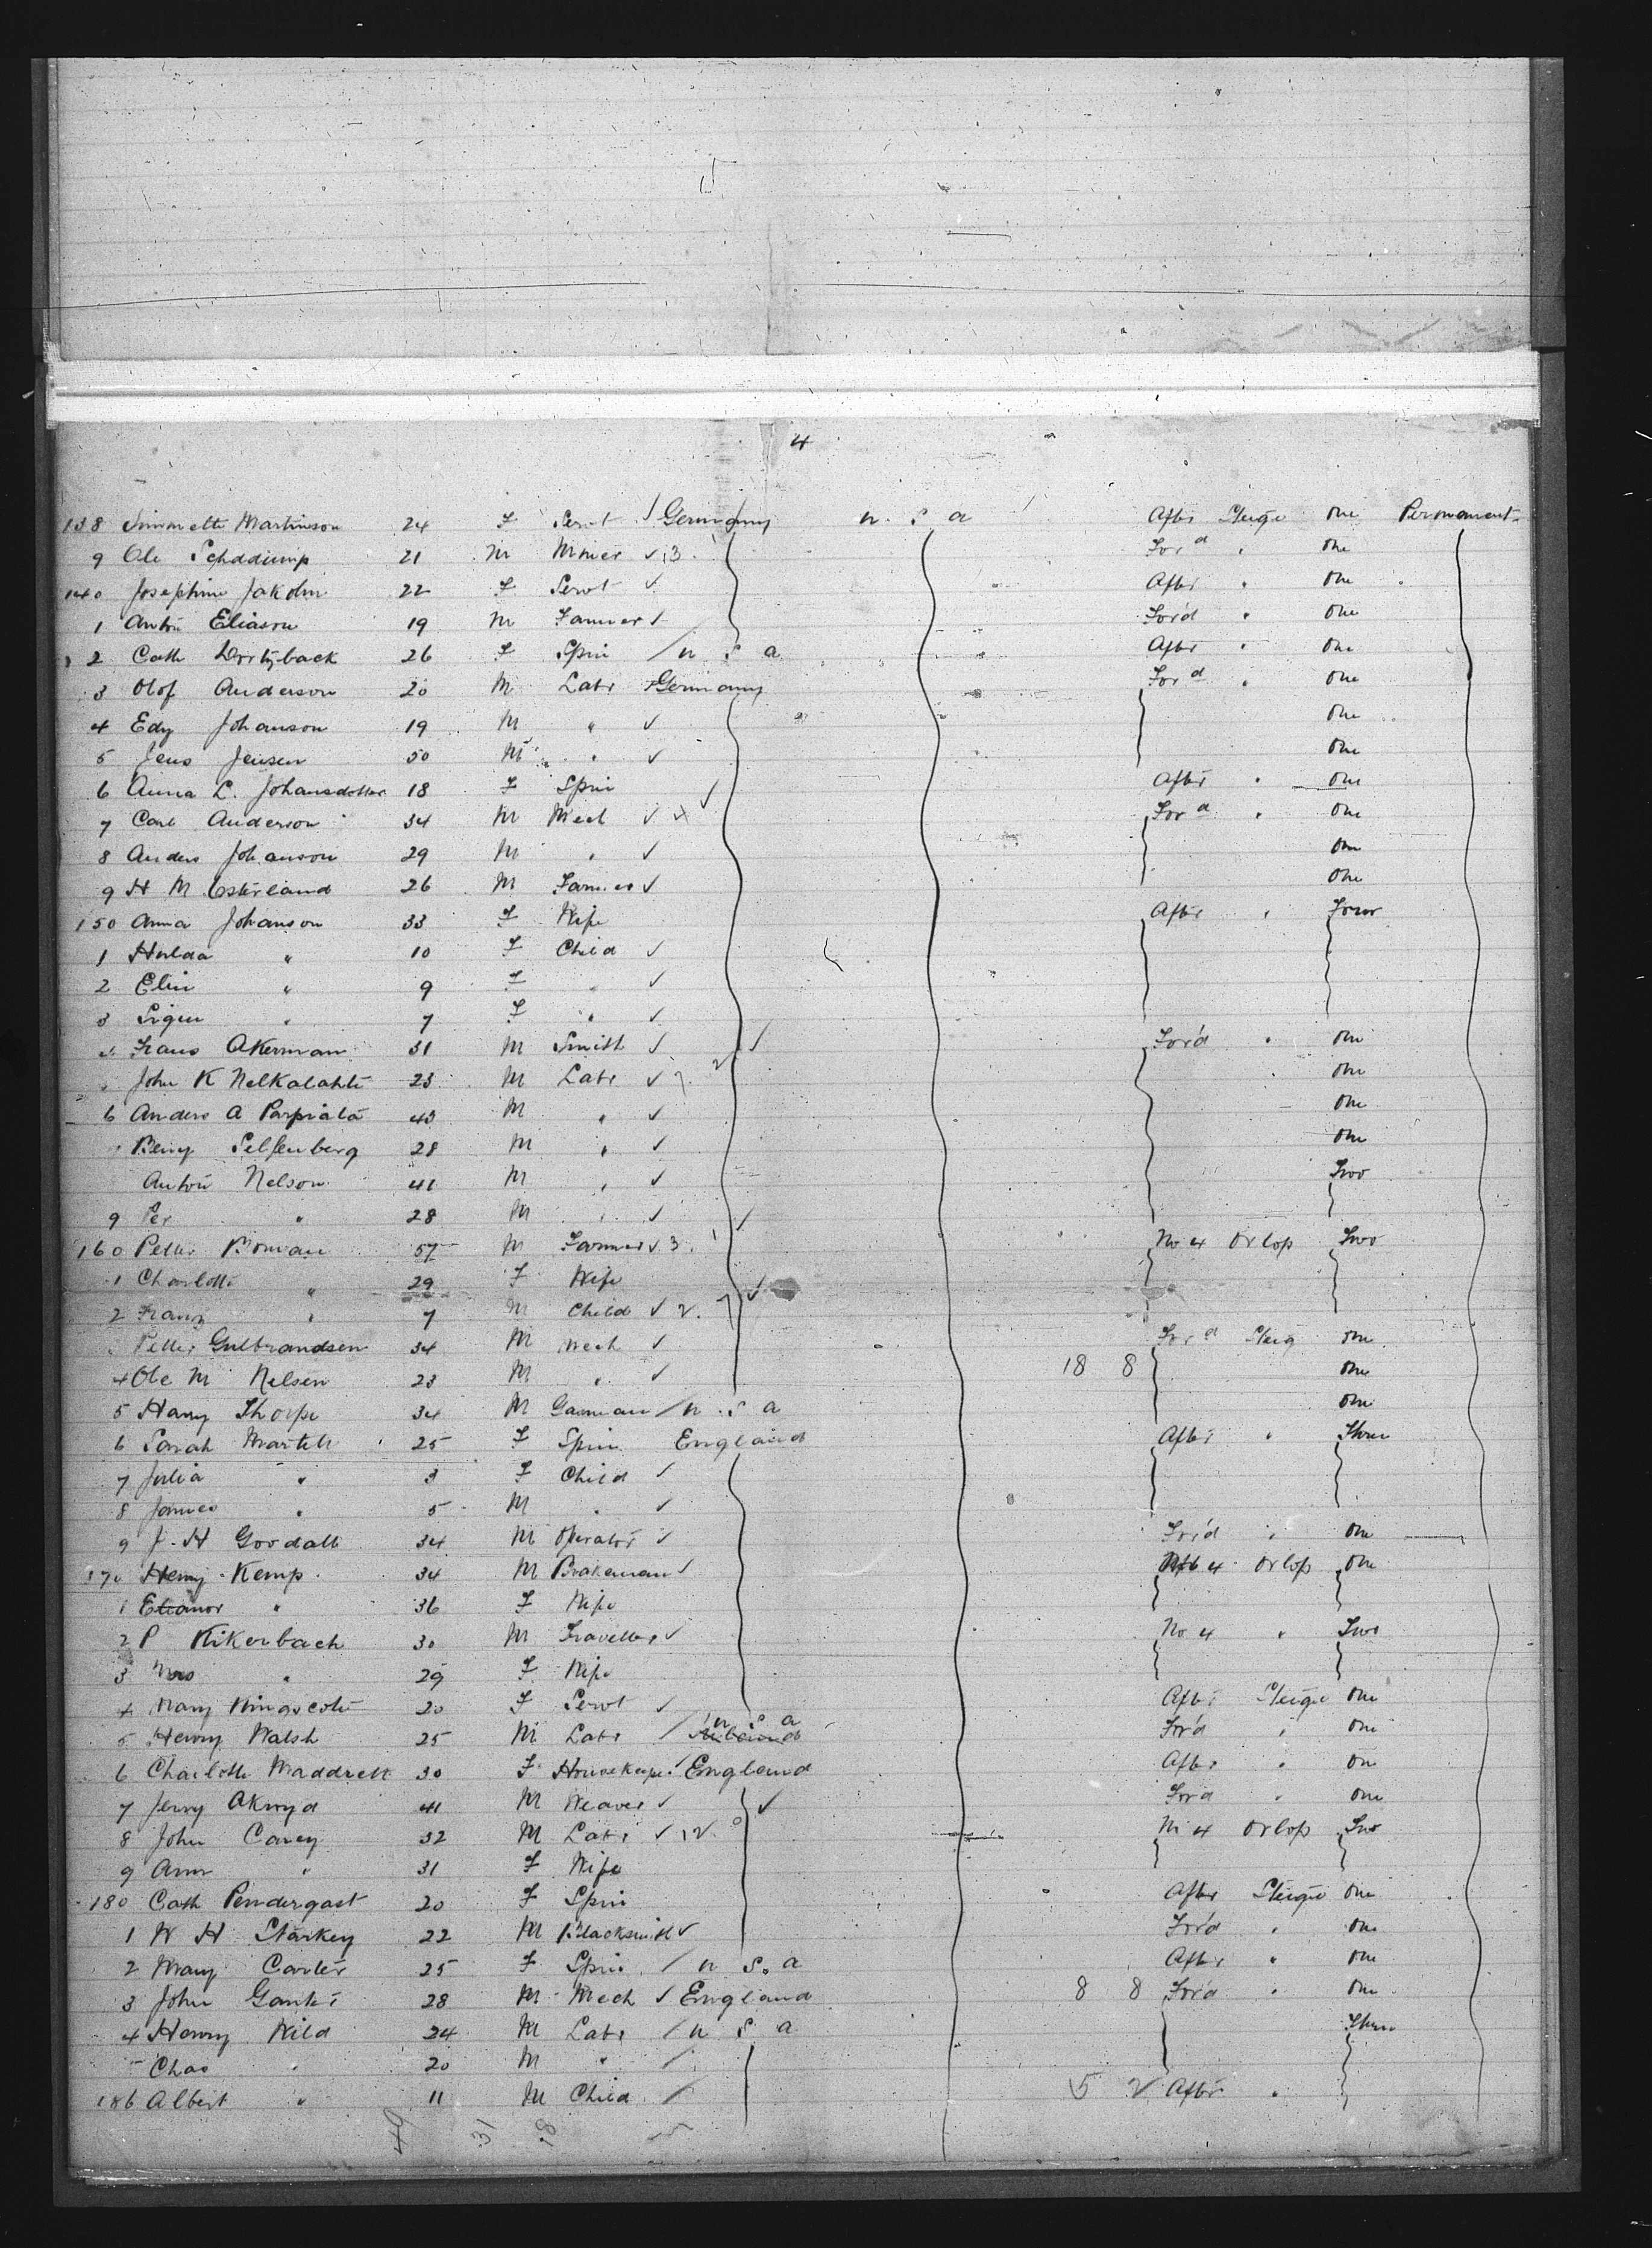 4
138 Simonette Martinson 24 F Servt / Germany u. s a After Steige One Permanent
9 Ole 21 M Miner ✓ 3. For'd " One
140 Josephine Jakolm 22 F Servt ✓ After " One
1 Anton Eliason 19 M Farmer ✓ For'd " One
2 Cath Dortyback 26 F Spin / u s a After " One
3 Olof Anderson 20 M Labr Germany For'd " One
4 Edy Johanson 19 M " ✓ One
5 Jens Jensen 50 M " ✓ One
6 Anna L. Johansdotter 18 F Spin ✓ After " One
7 Carl Anderson 34 M Mech ✓ x For'd " One
8 Anders Johanson 29 M " ✓ One
9 H M Osterland 26 M Farmer ✓ One
150 Anna Johanson 33 F Wife After " Four
1 Hulda " 10 F Child ✓
2 Elin " 9 F " ✓
3 Signe " 7 F " ✓
4 Frans Akerman 31 M Smith ✓ ✓ For'd " One
John K Nelkalahti 23 M Labr ✓ One
6 Anders A Parpiala 43 M " ✓ One
Beny Selfenberg 28 M " ✓ One
Anton Nelson 41 M " ✓ Two
9 Per " 28 M " ✓ ✓
160 Petter Boman 57 M Farmer ✓ 3. No 4 Orlop Two
1 Charlotte " 29 F Wife ✓
2 Franz " 7 M Child ✓ 2.
Petter Gulbrandsen 34 M Mech ✓ For'd Steig One
4 Ole M Nelsen 23 M " ✓ 18 8 One
5 Harry Thorpe 34 M Gasman / u. s a One
6 Sarah Martell 25 F Spin England After " Three
7 Julia " 3 F Child ✓
8 James " 5 M " ✓
9 J. H Goodall 34 M Operator ✓ For'd " One
170 Henry Kemp 34 M Brakeman ✓ 4 Orlop One
1 Eleanor " 36 F Wife
2 P Kikerbach 30 M Traveller ✓ No 4 " Two
3 Mrs " 29 F Wife
4 Mary Kingscote 20 F Servt ✓ After Steige One
5 Henry Walsh 25 M Labr / u s a For'd " One
6 Charlotte Maddrell 30 F Housekeeper England After " One
7 Jerry Akroyd 41 M Weaver ✓ ✓ For'd " One
8 John Carey 32 M Labr ✓ 12 No 4 Orlop Two
9 Ann " 31 F Wife
180 Cath Pendergast 20 F Spin After Steige One
1 W H Starkey 22 M Blacksmith ✓ For'd " One
2 Mary Carter 25 F Spin / u s. a After " One
3 John 28 M Mech ✓ England 8 8 For'd " One
4 Henry Wild 24 M Labr / u s a Three
Chas " 20 M " /
186 Albert " 11 M Child / 5 2 After "
49 31 18